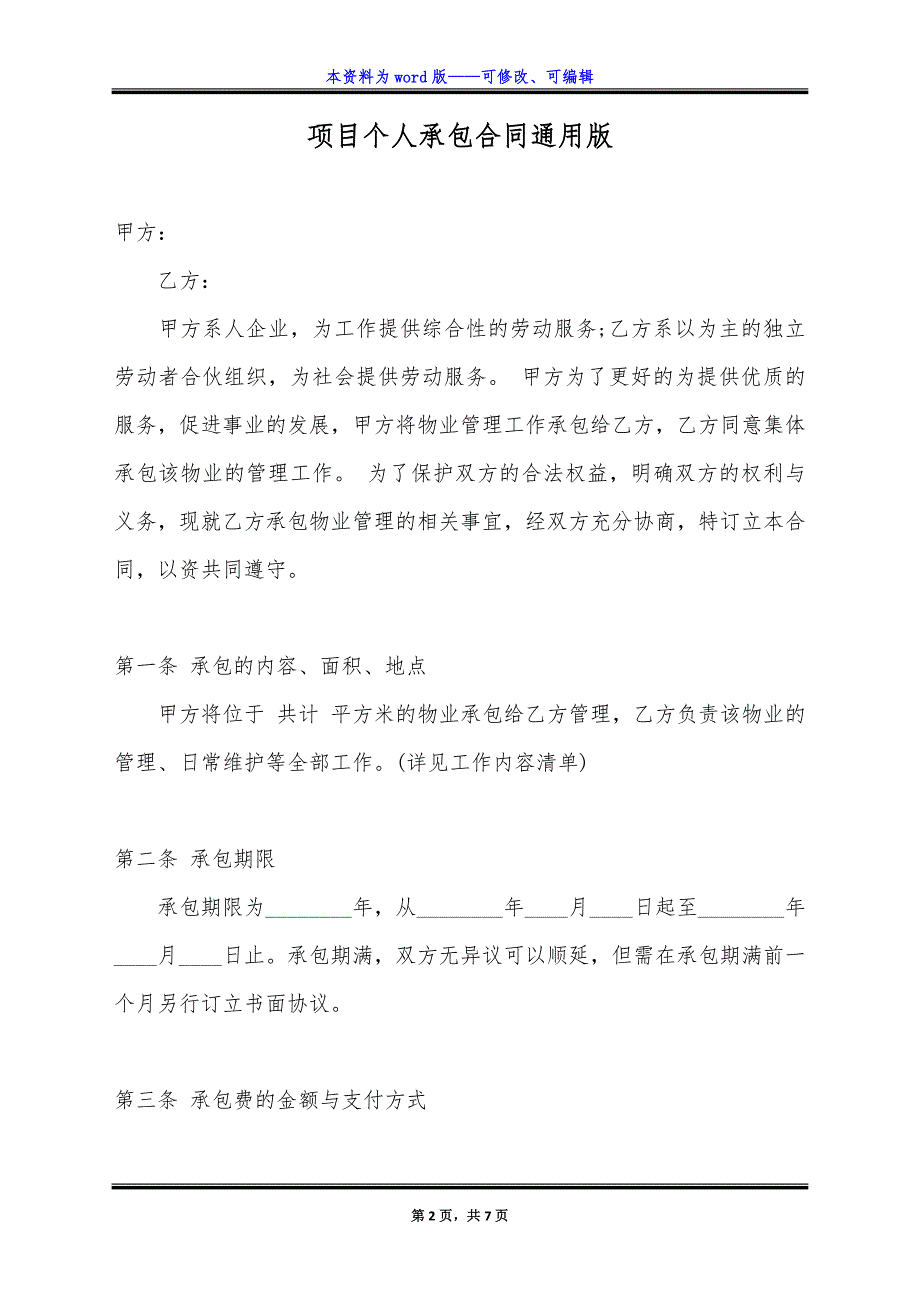 本资料为 word 版——可修改、可编辑
项目个人承包合同通用版
甲方：
乙方：
甲方系人企业，为工作提供综合性的劳动服务;乙方系以为主的独立
劳动者合伙组织，为社会提供劳动服务。 甲方为了更好的为提供优质的
服务，促进事业的发展，甲方将物业管理工作承包给乙方，乙方同意集体
承包该物业的管理工作。 为了保护双方的合法权益，明确双方的权利与
义务，现就乙方承包物业管理的相关事宜，经双方充分协商，特订立本合
同，以资共同遵守。
第一条 承包的内容、面积、地点
甲方将位于 共计 平方米的物业承包给乙方管理，乙方负责该物业的
管理、日常维护等全部工作。(详见工作内容清单)
第二条 承包期限
承包期限为________年，从________年____月____日起至________年
____月____日止。承包期满，双方无异议可以顺延，但需在承包期满前一
个月另行订立书面协议。
第三条 承包费的金额与支付方式
第 2 页，共 7 页